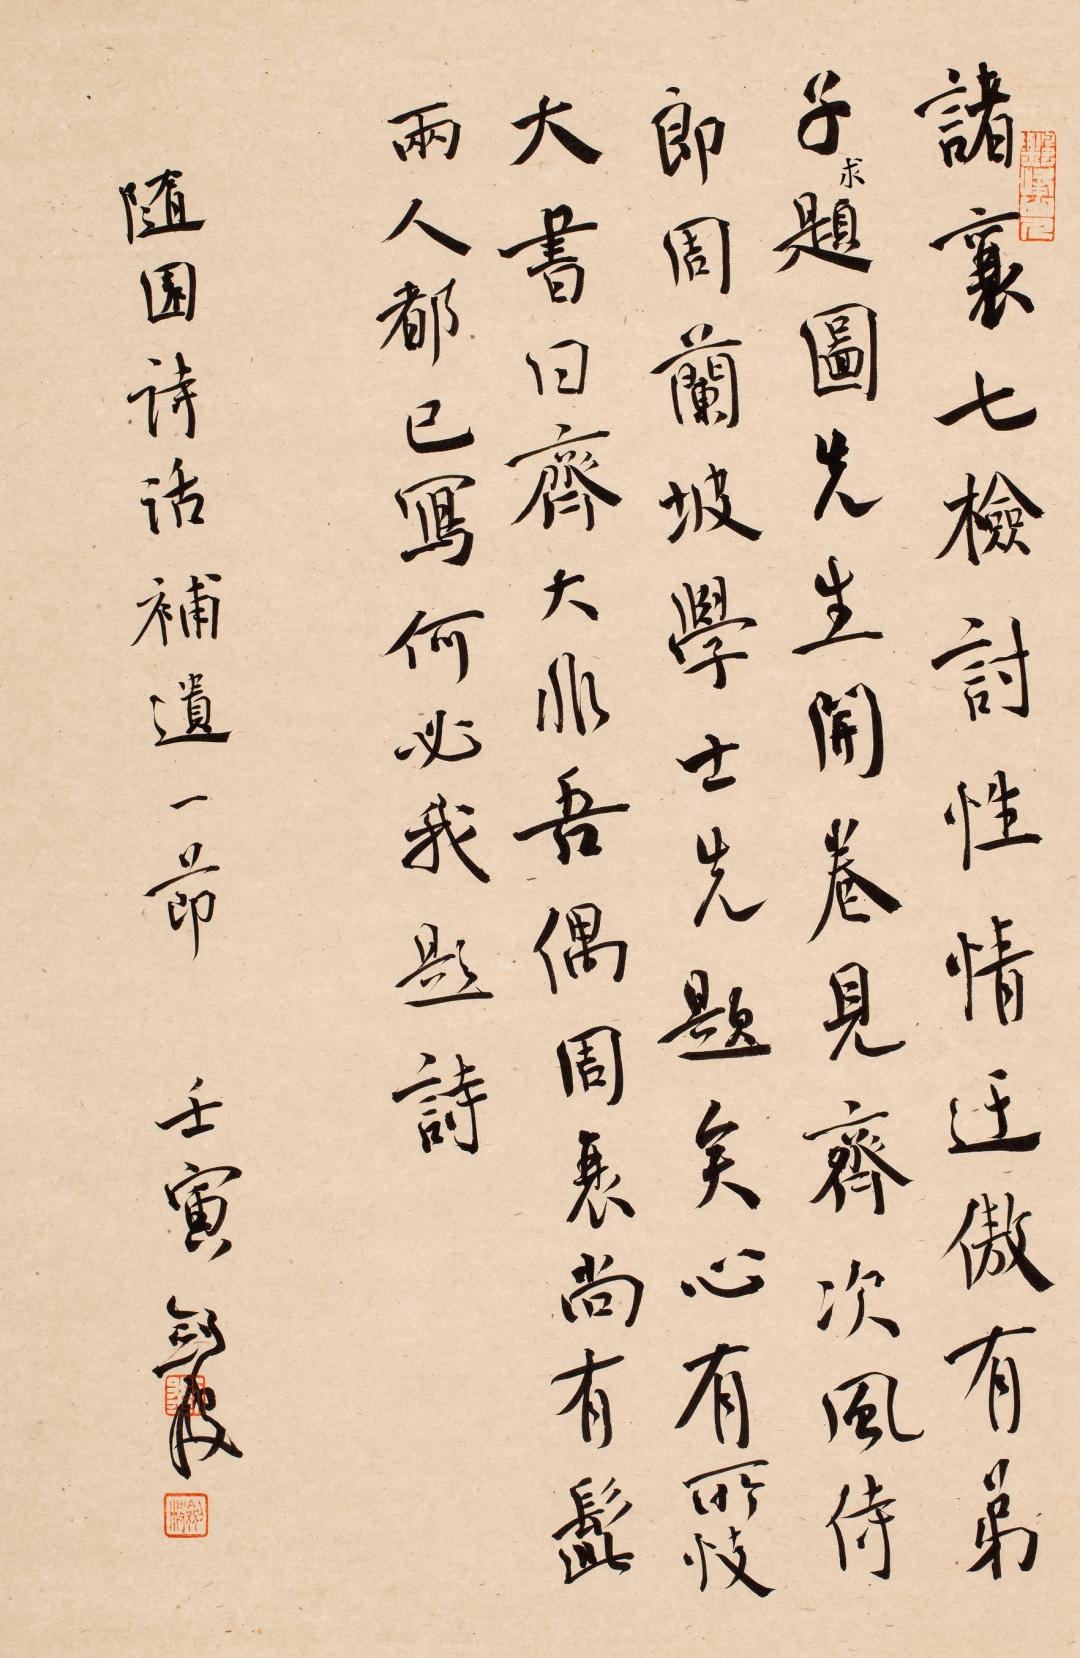 諸襄七檢討性情迂傲有弟
子求題圖先生開卷見齊次風侍
郎周蘭坡學士先題矣心有所忮
大書曰齊大非吾偶周衰尚有髭
兩人都已寫何必我題詩
隨園詩話補遺一節 壬寅